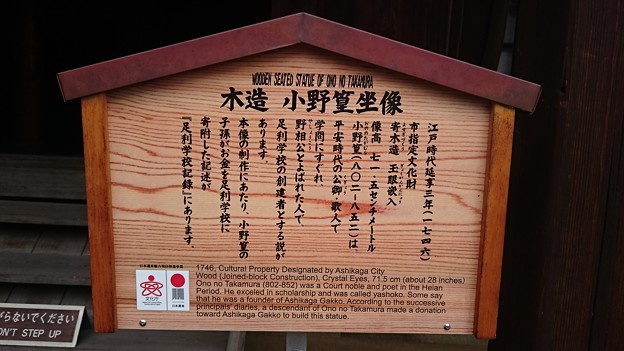 WOODEN SEATED STATUE OF ONO NO TAKAMURA
木造 小野篁坐像
江戸時代延享三年(一七四六)
市指定文化財
寄木造 玉眼嵌入
像高 七一・五センチメートル
小野篁(八〇二-八五二)は、
平安時代の公卿・歌人で
学問にすぐれ、
野相公とよばれた人で、
足利学校の創建者とする説が
あります。
本像の制作にあたり、小野篁の
子孫がお金を足利学校に
寄附した記述が
『足利学校記録』にあります。
1746, Cultural Property Designated by Ashikaga City
Wood (Joined-block Construction), Crystal Eyes, 71.5 cm (about 28 inches)
Ono no Takamura (802-852) was a Court noble and poet in the Heian
Period. He exceled in scholarship and was called yashoko. Some say
that he was a founder of Ashikaga Gakko. According to the successive
principals' diaries, a descendant of Ono no Takamura made a donation
toward Ashikaga Gakko to build this statue.
文化庁
日本遺産
がらないでください
ON'T STEP UP